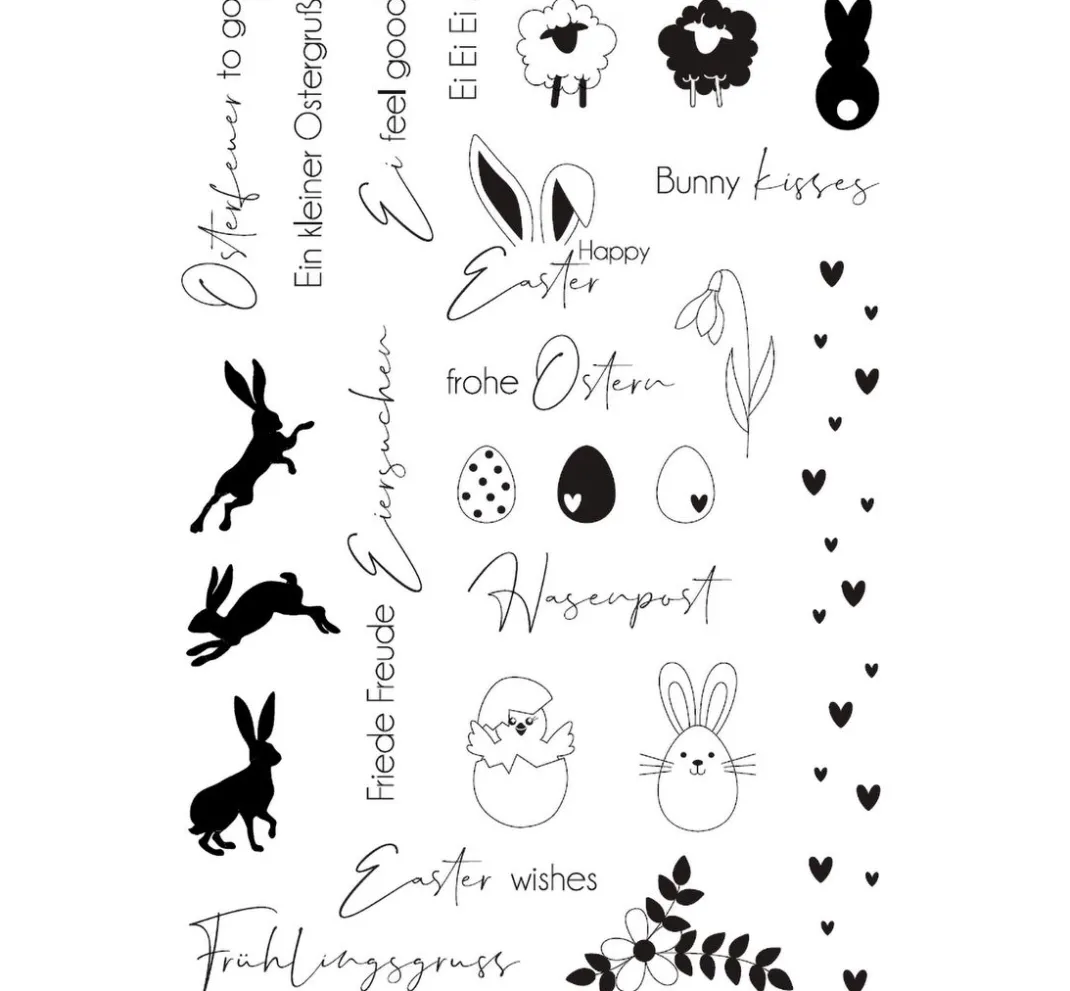 Osterfeuer to go
Ein kleiner Ostergruß
Ei feel good
Ei Ei Ei
Bunny kisses
Happy
Easter
frohe Ostern
Eiersuchen
Hasenpost
Friede Freude
Easter wishes
Frühlingsgruss